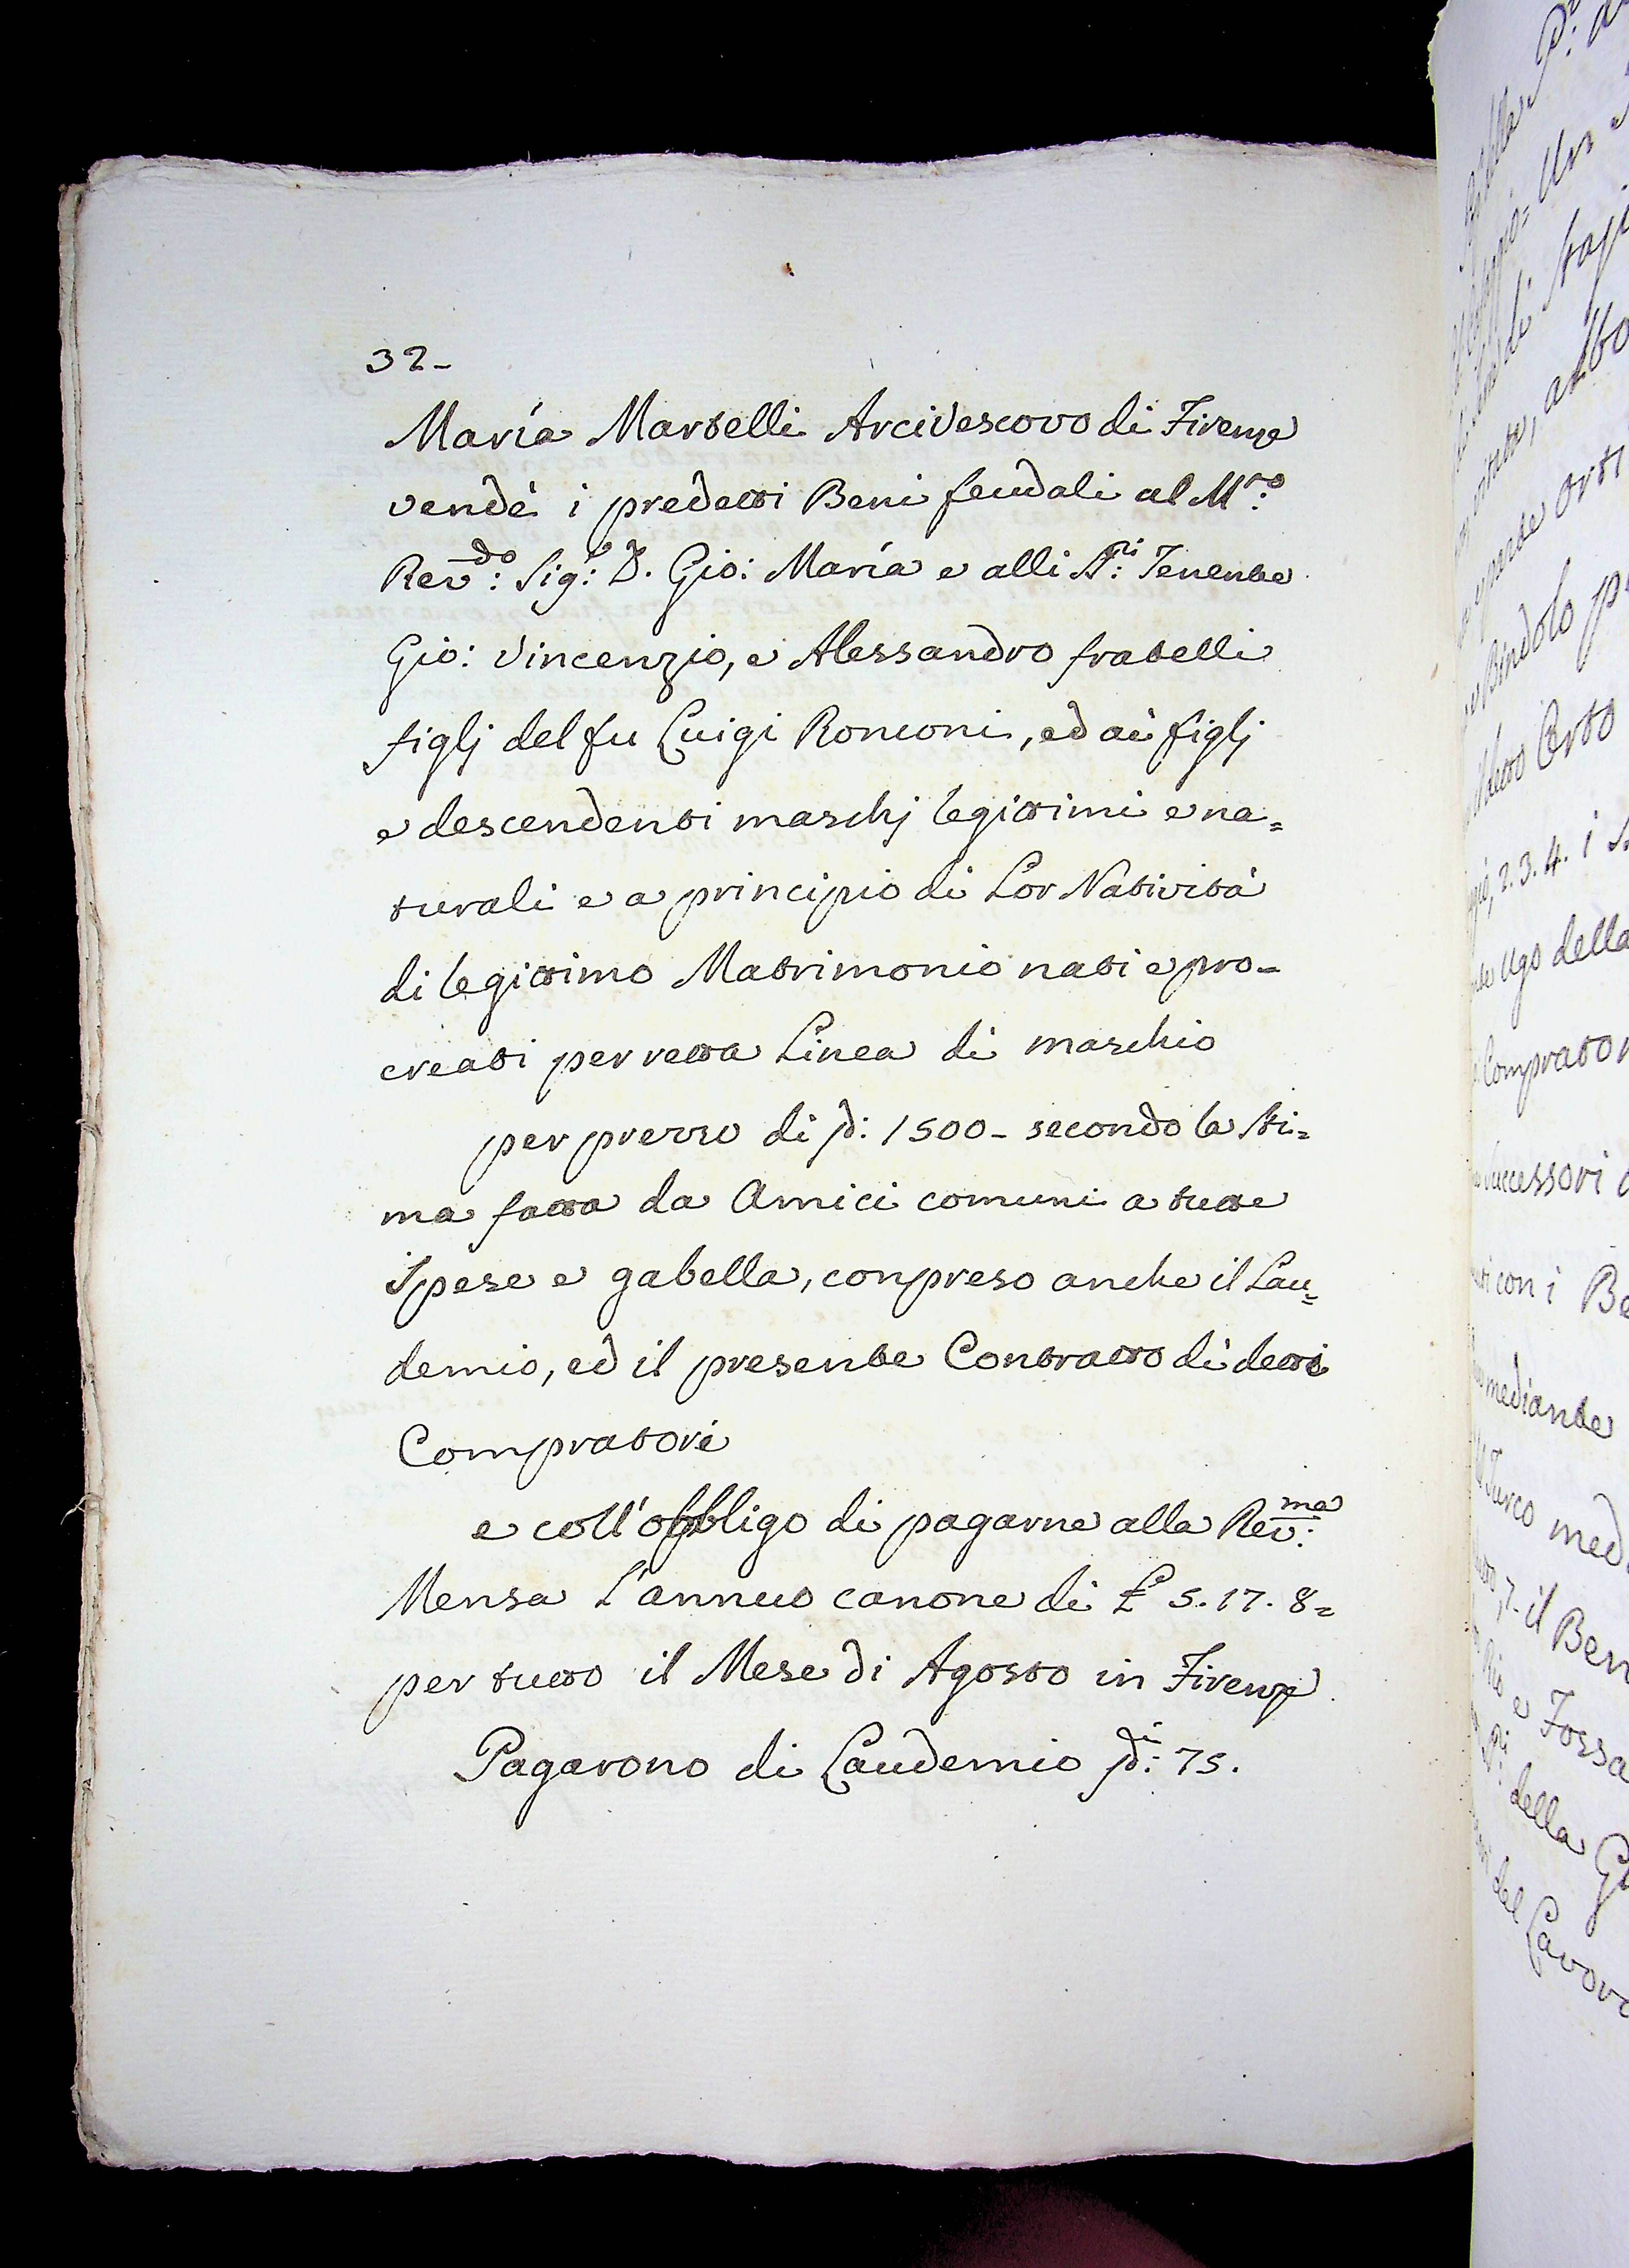 32-
Maria Martelli Arcivescovo di Firenze
vendè i predetti Beni feudali al M.ro
Rev.do: Sig.r: D. Gio: Maria e alli SS.ri: Tenente
Gio: Vincenzio, e Alessandro fratelli
figlj del fu Luigi Ronconi, ed ai figlj
e descendenti maschj legittimi e na=
turali e a principio di Lor Natività
di legittimo Matrimonio nati e pro=
creati per retta Linea di maschio
per prezzo di 1500- secondo la sti=
ma fatta da Amici comuni a tutte
Spese e gabella, conpreso anche il Lau=
demio, ed il presente Contratto di detti
Compratori
e coll'obbligo di pagarne alla Rev.ma:
Mensa L'annuo canone di £ 5. 17. 8=
per tutto il Mese di Agosto in Firenze
Pagarono di Laudemio 75.
Bindolo
2. 3. 4. i
Ugo della
Comprator
successori
con i Be
mediante
7. il Ben
e Fossa
della
del Lavoro